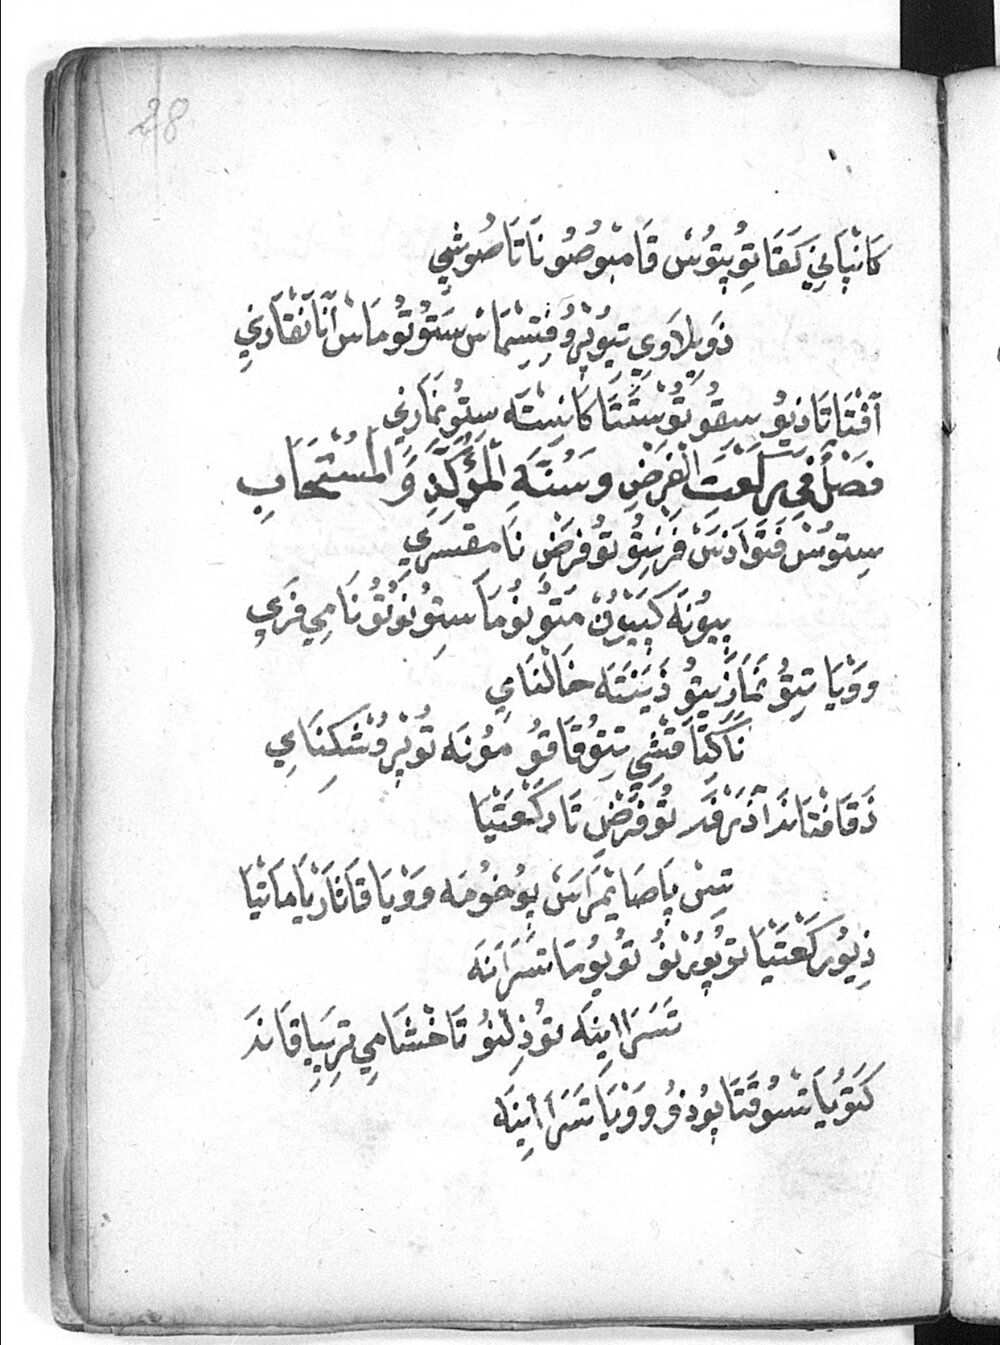 48
كَانْپَانِي كَقَاتِوُپتُوُسْ قَامبُوصُونَاتَا صُوشِي
ذَوِيلَاوِي تِيوُپرُوفِتِسِمَاسْ سَتُوتُومَاسْ آنَانقَارنِي
آفْتَاتَاذِيوُ سِقُوتُوسْتَا كَانِسْتَه سِتُونمَارنِي
فَصْلٌ فِي رَكْعَتِ الْفَرْضِ وَسُنَّةِ الْمُؤَكَّدِ وَالْمُسْتَحَابِ
سِتوُسْ فَتَوَاذسَسْ فَرسِتُوتُوفَرضْ نَامقسَرِي
پيوُنَه كَپيِيرنْ مَتوُنوُمَا سَتِوُنوُتوُنَامِي فَرِي
ووْيَا تِتوُ نَمَازِيتوُ ذَينَتَه خَالْنَامِي
نَاكِتَافتَشِي تِتوُقَاقوُ موُنَه توُپرُوشكِنَامِي
ذَقَامْتَانذَا آذَرْفَه توُفَرضِ تَا ركَعْتْيَا
تِسْ پَاصَا يْمَرَاسْ پِوُخوُمَه ووْيَا قَانَارْيَامَاتْيَا
ذِيوُ ركَعْتْيَا توُپوُرْنوُ توُيوُمَاتَسَرَانَه
تَسَرَا اينَه توُذِلْنوُ تَاخْشَامِي تِرپيِاقَانذَ
كَقوُيَاتسُوقْتَا پوُذوُ ووْيَا تَسَرَا اينَه